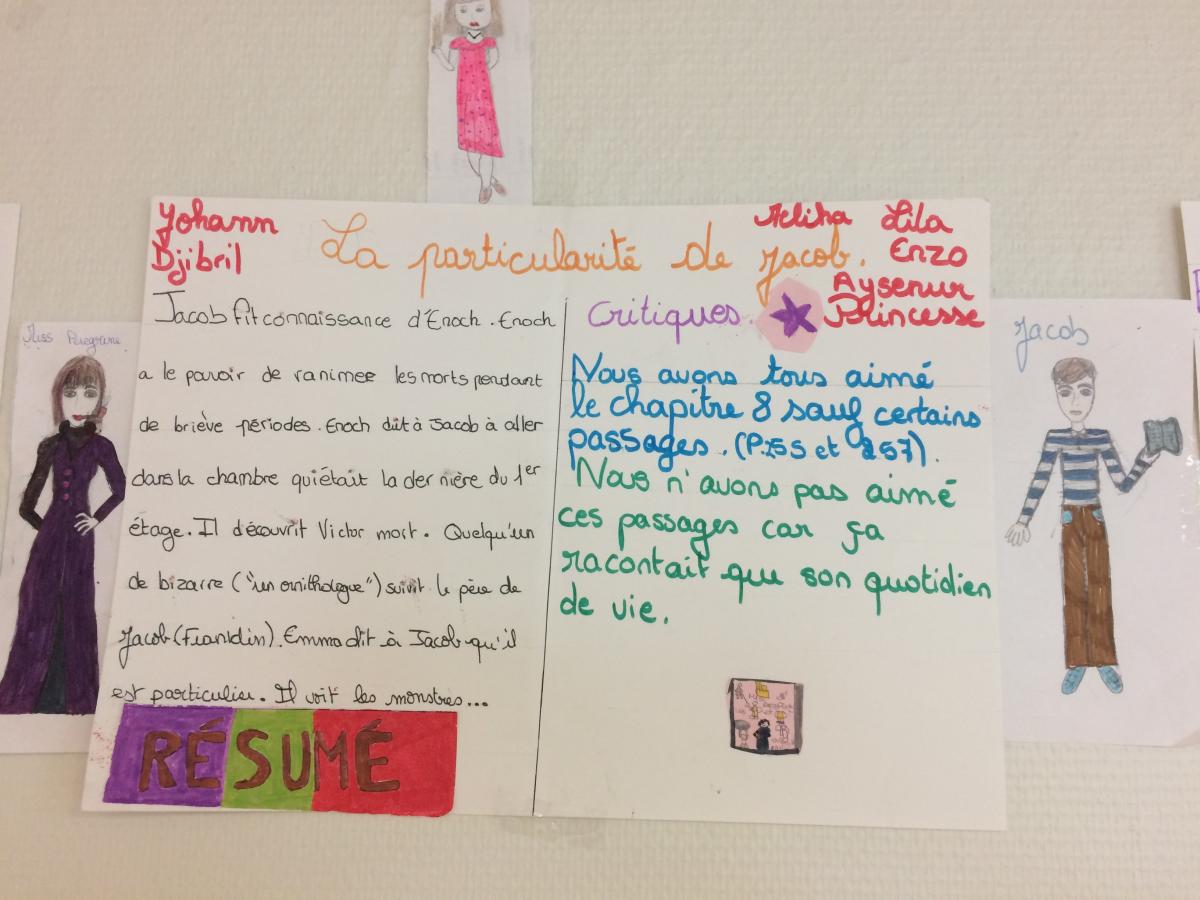 Yohann
Djibril
La particularité de jacob.
Lila
Enzo
Aysenur
Princesse
Miss Peregrine
Jacob fit connaissance d'Enoch. Enoch
a le pouvoir de ranimer les morts pendant
de briève périodes. Enoch dit à Jacob à aller
dans la chambre qui était la dernière du 1er
étage. Il découvrit Victor mort. Quelqu'un
de bizarre ("un ornithologue") suivit le père de
Jacob (Franklin). Emma dit à Jacob qu'il
est particulier. Il voit les monstres...
RÉSUMÉ
Critiques.
Nous avons tous aimé
le chapitre 8 sauf certains
passages. (P.255 et 257).
Nous n'avons pas aimé
ces passages car ça
racontait que son quotidien
de vie.
Jacob